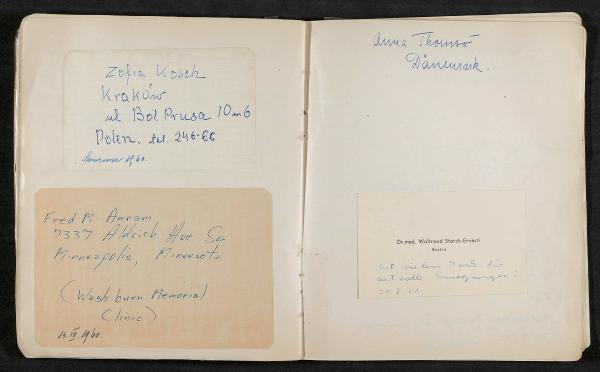 Zofia Kosch
Kraków
ul Bol Prusa 10 m 6
Polen. tel. 246-66
Sommer 1960.
Fred M. Amram
7337 Aldrich Ave So
Minneapolis, Minnesota
(Washburn Memorial
Clinic)
14.VII.1960.
Anna Thomsö
Dänemark.
Dr. med. Waltraud Storck-Ernesti
Ärztin
Mit vielem Dank für
wertvolle Anregungen!